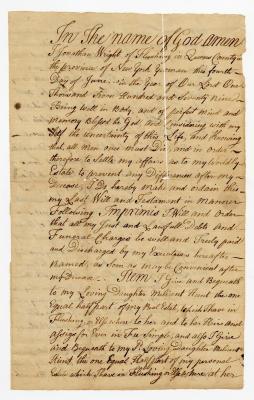 In The name of God Amen
I Jonathan Wright of Flushing in Queens County in
the province of New York Yeoman this fourth
Day of June in the Year of Our Lord One
Thousand Seven Hundred and Seventy Nine
Being well in Body, and of perfect mind and
memory Blessed be God, and Considering with my
Self the uncertainty of this Life, and knowing
that all men once must Die, and in order
therefore to Settle my affairs as to my worldly
Estate to prevent any Differences after my
Decease, I Do hereby make and ordain this
my Last Will and Testament in manner
Following Imprimis I Will and order
that all my Just and Lawfull Debts and
Funeral Charges be well and Truly paid
and Discharged by my Executors hereafter
named, as soon as may be Convenient after
my Decease - Item I give and Bequeath
to my Loving Daughter Millicent Hunt the one
Equal half part of my Real Estate, which I have in
Flushing or Elsewhere to her and to her Heirs and
assigns for Ever in Fee Simple, and also I Give
and Bequeath to my Sd Loving Daughter Millicent
Hunt the one Equal Half part of my personal
Estate which I have in Flushing or Elsewhere at her